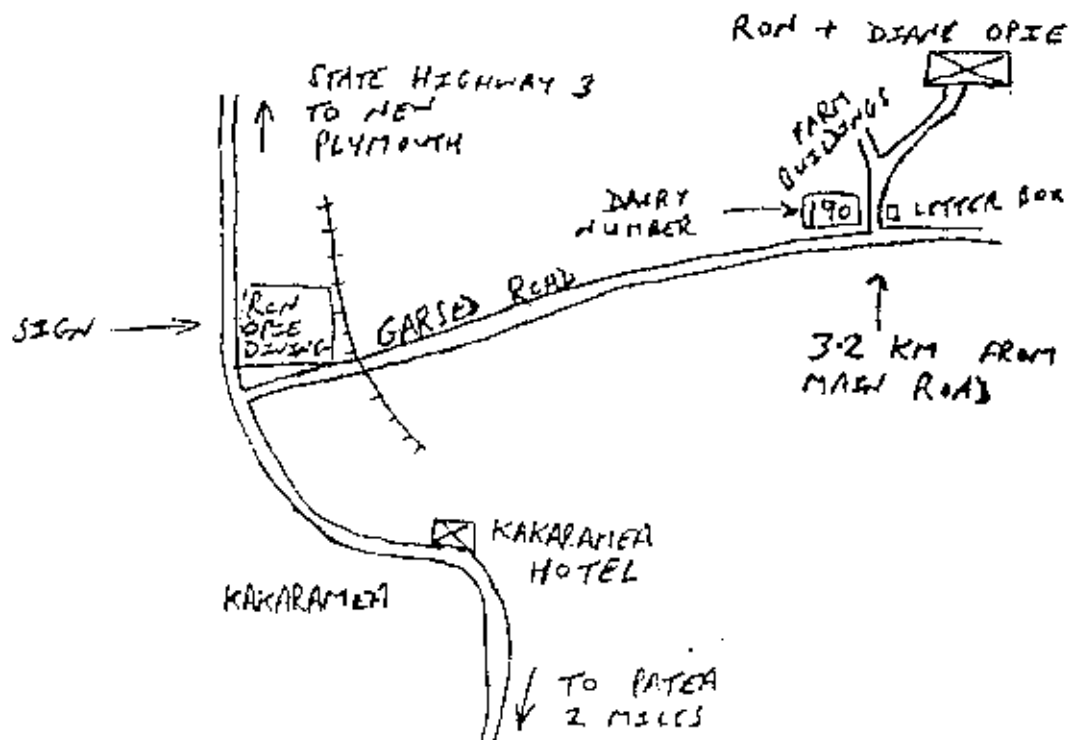 RON + DIANE OPIE
STATE HIGHWAY 3
TO NEW
PLYMOUTH
FARM
BUILDINGS
DAIRY
NUMBER
190
LETTER BOX
SIGN
RON
OPIE
DIVING
GARSED ROAD
3.2 KM FROM
MAIN ROAD
KAKARAMEA
HOTEL
KAKARAMEA
TO PATEA
2 MILES